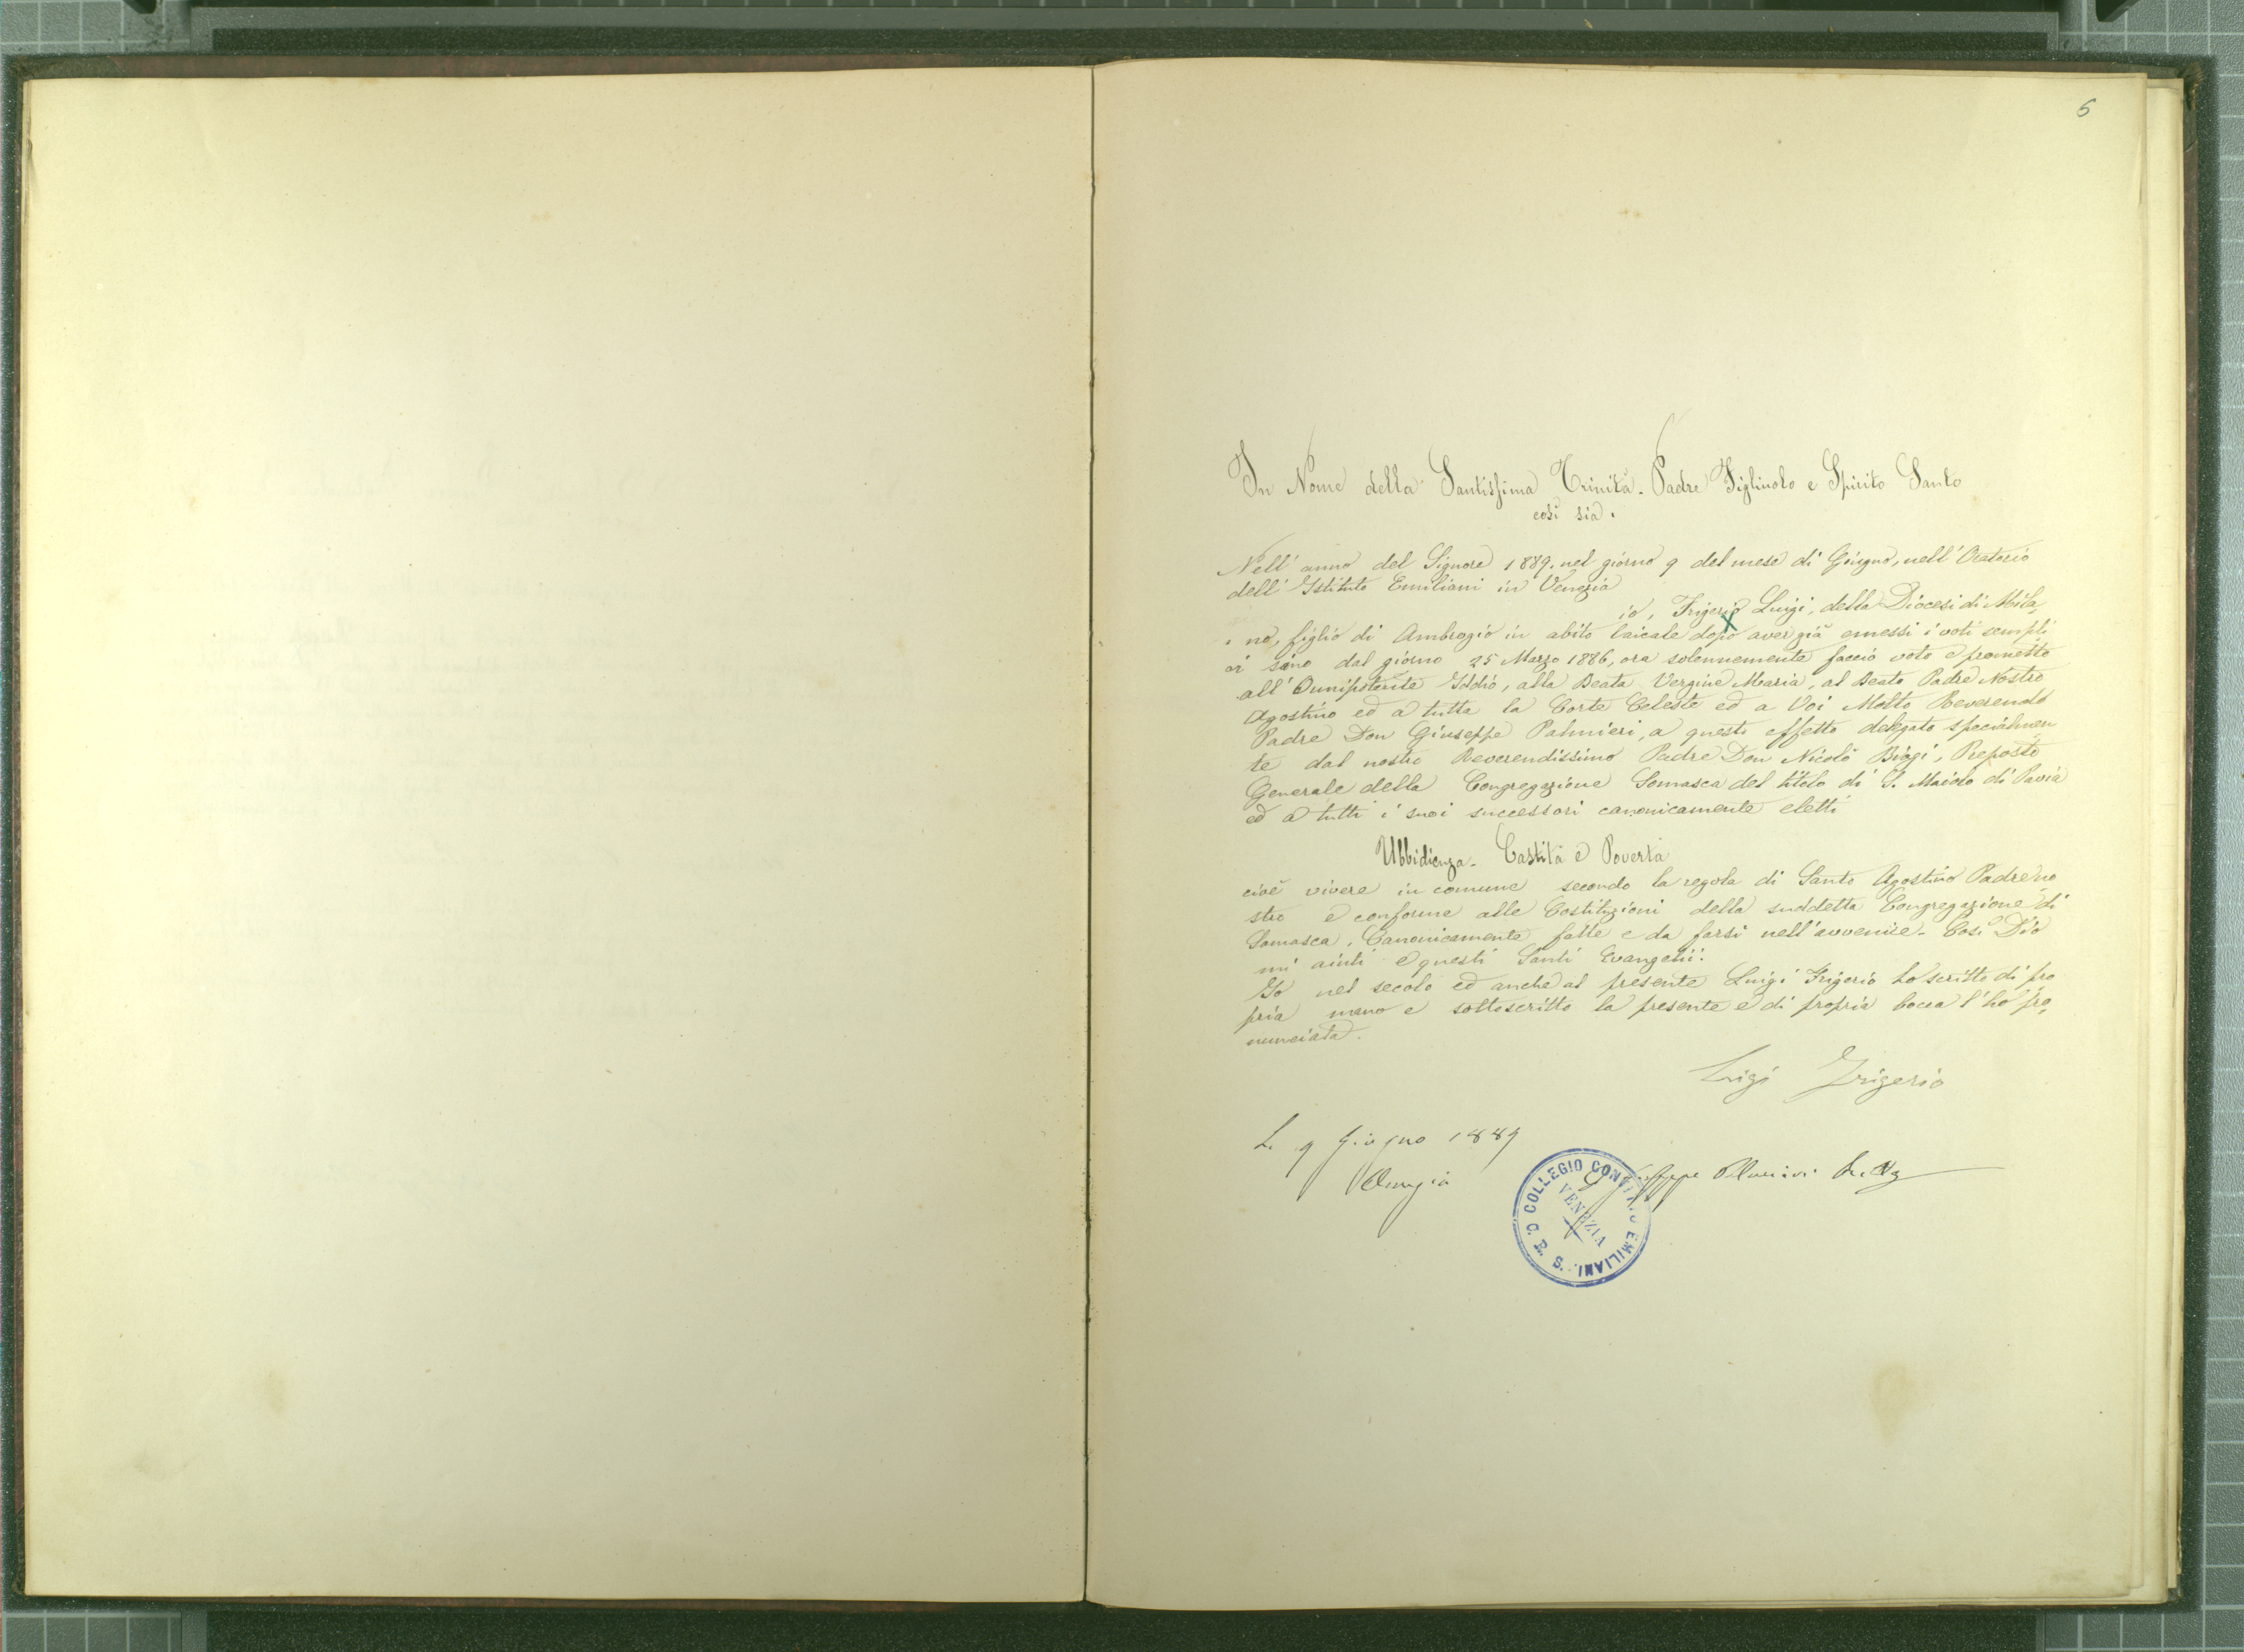 5
In Nome della Santissima Trinità. Padre Figliuolo e Spirito Santo
così sia.
Nell' anno del Signore 1889. nel giorno 9 del mese di Giugno, nell' Oratorio
dell' Istituto Emiliani in Venezia
io, Frigerio Luigi, della Diocesi di Mila
no, figlio di Ambrogio in abito laicale dopo aver già emessi i voti sempli
ci sino dal giorno 25 Marzo 1886, ora solennemente faccio voto e prometto
all' Omnipotente Iddio, alla Beata Vergine Maria, al Beato Padre Nostro
Agostino ed a tutta la Corte Celeste ed a Voi Molto Reverendo
Padre Don Giuseppe Palmieri, a questo effetto delegato specialmen
te dal nostro Reverendissimo Padre Don Nicolò Biagi, Preposto
Generale della Congregazione Somasca del titolo di S. Maiolo di Pavia
ed a tutti i suoi successori canonicamente eletti
Ubbidienza. Castità e Povertà
cioè vivere in comune secondo la regola di Santo Agostino Padre no
stro e conforme alle Costituzioni della suddetta Congregazione di
Somasca, Canonicamente fatte e da farsi nell' avvenire. Così Dio
mi aiuti e questi Santi Evangelii.
Io nel secolo ed anche al presente Luigi Frigerio ho scritto di pro
pria mano e sottoscritto la presente e di propria bocca l' ho pro
nunciata.
Luigi Frigerio
L. 9 Giugno 1889
Venezia
Giuseppe Palmieri
COLLEGIO CONVITTO EMILIANI. S. C. R. S.
VENEZIA